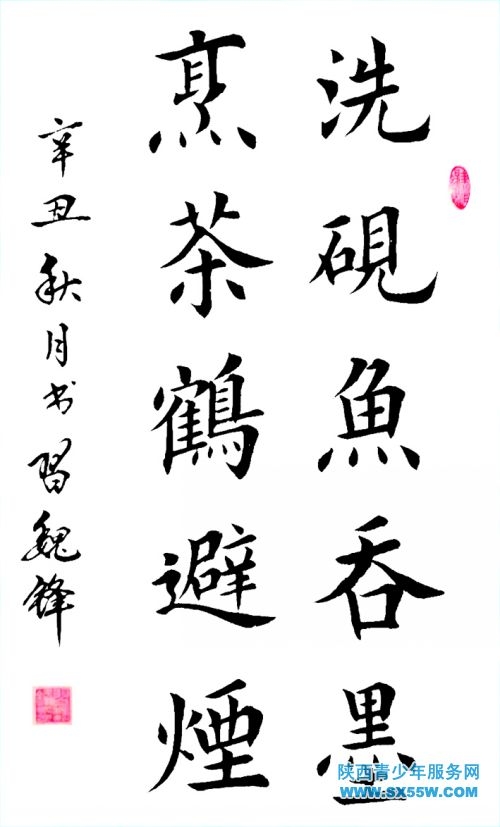 洗硯魚吞墨
烹茶鶴避煙
辛丑秋月书習魏锋
陕西青少年服务网
www.sx55w.com